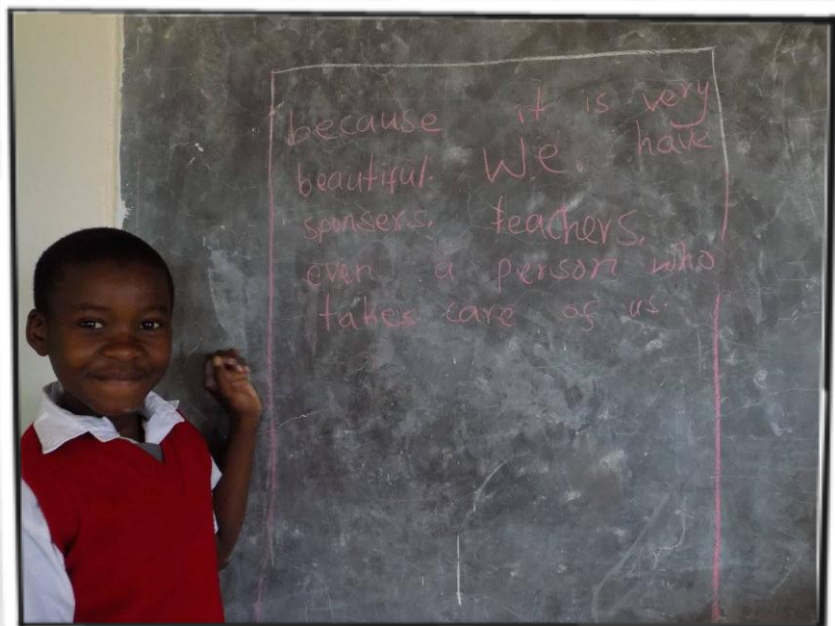 because it is very
beautiful. We. have
sponsers. teachers.
even a person who
takes care of us.